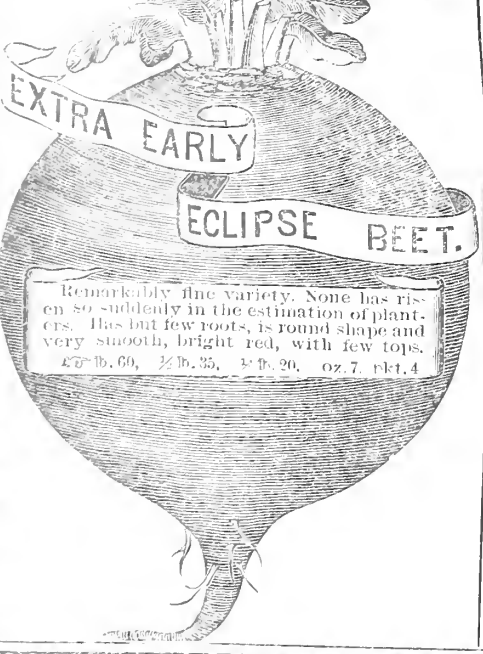 EXTRA EARLY
ECLIPSE BEET.
Remarkably fine variety. None has ris-
en so suddenly in the estimation of plant-
ers. Has but few roots, is round shape and
very smooth, bright red, with few tops.
☞ lb. 60, ½ lb. 35, ¼ lb. 20, oz. 7. pkt. 4